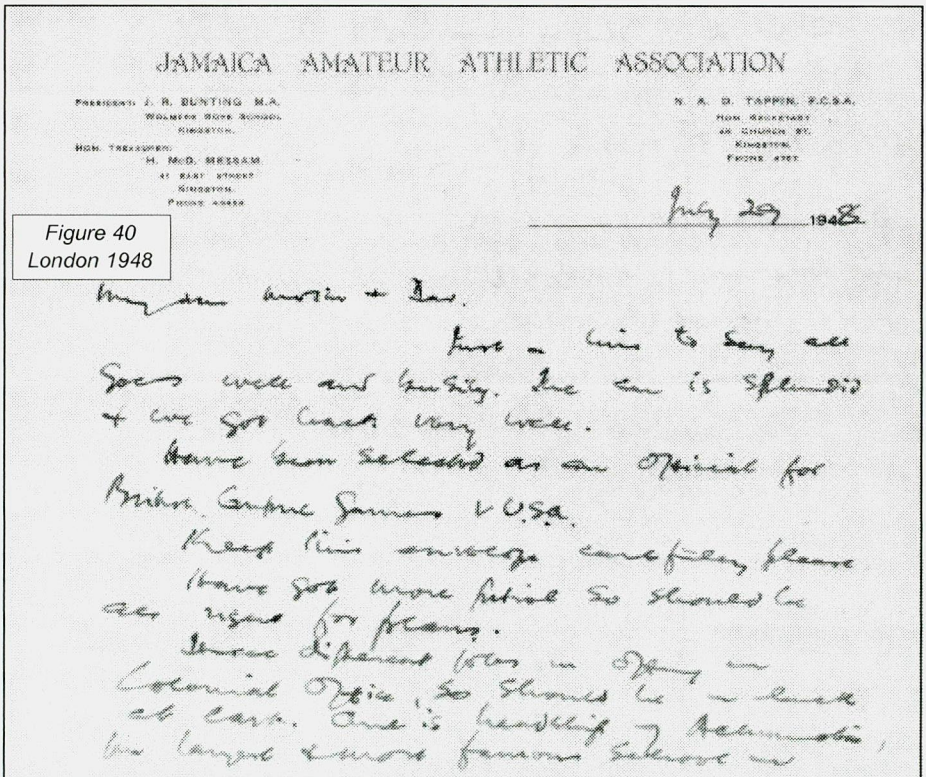 JAMAICA AMATEUR ATHLETIC ASSOCIATION
PRESIDENT: J. R. BUNTING M.A.
WOLMERS BOYS SCHOOL
KINGSTON.
HON. TREASURER:
H. McD. MESSAM
41 EAST STREET
KINGSTON.
PHONE
N. A. D. TAPPIN, F.C.S.A.
HON. SECRETARY
CHURCH ST.
KINGSTON.
PHONE
July 29 1948
Figure 40
London 1948
My dear Mother + Dad.
Just a line to say all
goes well and busily. The car is splendid
+ we got back very well.
Have been selected as an Official for
British Empire Games v U.S.A.
Keep this envelope carefully please
Have got more petrol so should be
all right for plans.
Three different jobs in offing in
Colonial Office, so should be in luck
at last. One is headship of Achimota,
the largest & most famous School in